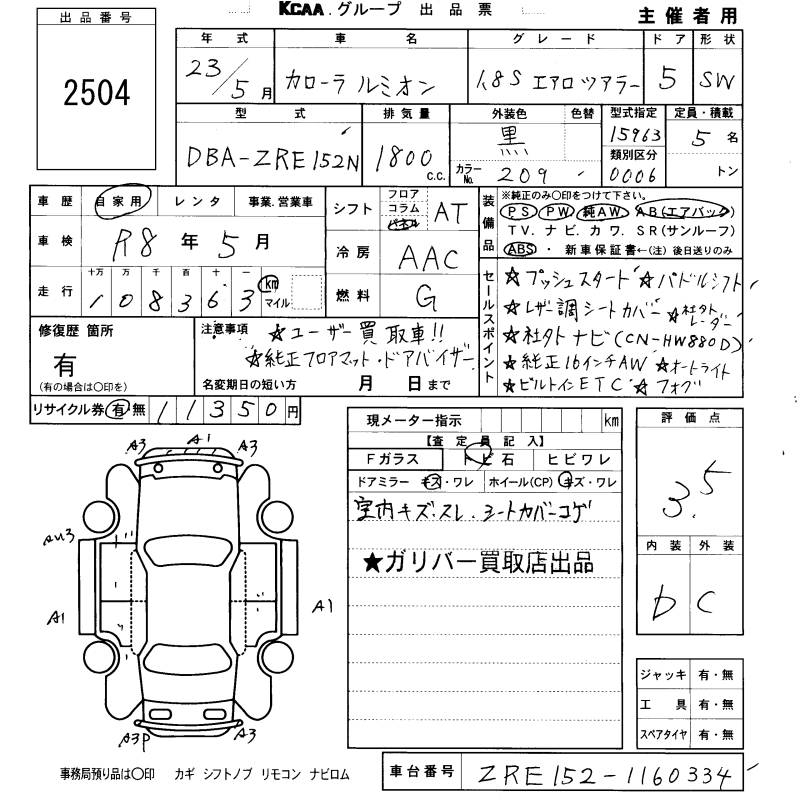 KCAA.グループ 出品票
主催者用
出品番号
2504
年式 車名 グレード ドア 形状
23/5月 カローラ ルミオン 1.8S エアロツアラー 5 SW
型式 排気量 外装色 色替 型式指定 定員・積載
DBA-ZRE152N 1800c.c. 黒 15963 5名
カラーNo. 209 類別区分 0006 トン
車歴 自家用 レンタ 事業.営業車
車検 R8年5月
走行 十万 万 千 百 十 一
108363 km マイル
シフト フロア コラム パネル AT
冷房 AAC
燃料 G
装備品 ※純正のみ○印をつけて下さい。
PS PW 純AW AB(エアバック)
TV. ナビ. カワ. SR(サンルーフ)
ABS ・ 新車保証書←(注) 後日送りのみ
セールスポイント
☆プッシュスタード ☆パドルシフト
☆レザー調シートカバー ☆社外レーダー
☆社外ナビ(CN-HW880D)
☆純正16インチAW ☆オートライト
☆ビルトインETC ☆フォグ
修復歴 箇所
有
(有の場合は○印を)
注意事項
☆ユーザー買取車!!
☆純正フロアマット・ドアバイザー
名変期日の短い方 月 日まで
リサイクル券 有 無 11350円
現メーター指示 km
【査定員記入】
Fガラス トビ石 ヒビワレ
ドアミラー キズ・ワレ ホイール(CP) キズ・ワレ
室内キズ.スレ.シートカバーコゲ
★ガリバー買取店出品
評価点
3.5
内装 外装
D C
A3 A1 A3
AU3
A1 A1
A3P A3
ジャッキ 有・無
工具 有・無
スペアタイヤ 有・無
事務局預り品は○印 カギ シフトノブ リモコン ナビロム
車台番号 ZRE152-1160334